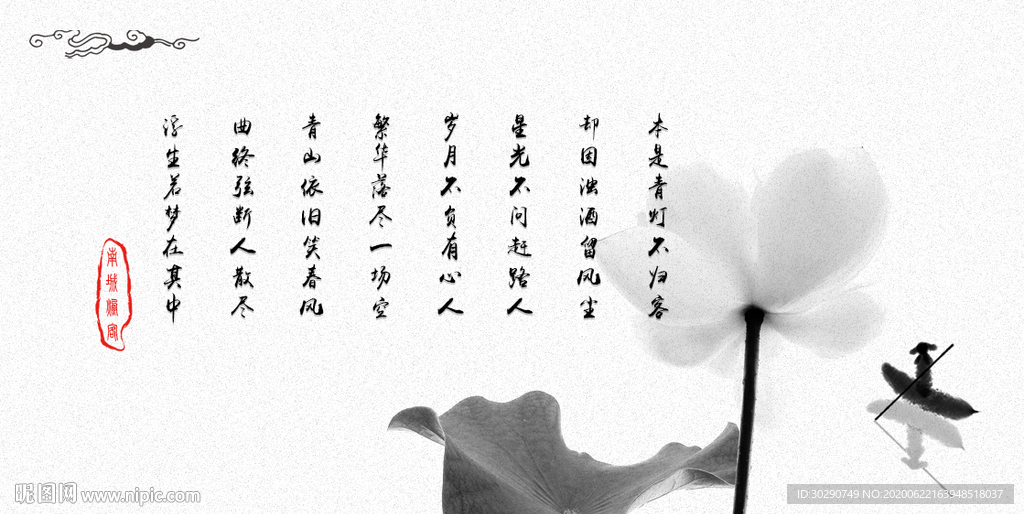 本是青灯不归客
却因浊酒留风尘
星光不问赶路人
岁月不负有心人
繁华落尽一场空
青山依旧笑春风
曲终弦断人散尽
浮生若梦在其中
昵图网 www.nipic.com
ID:30290749 NO:20200622163948518037